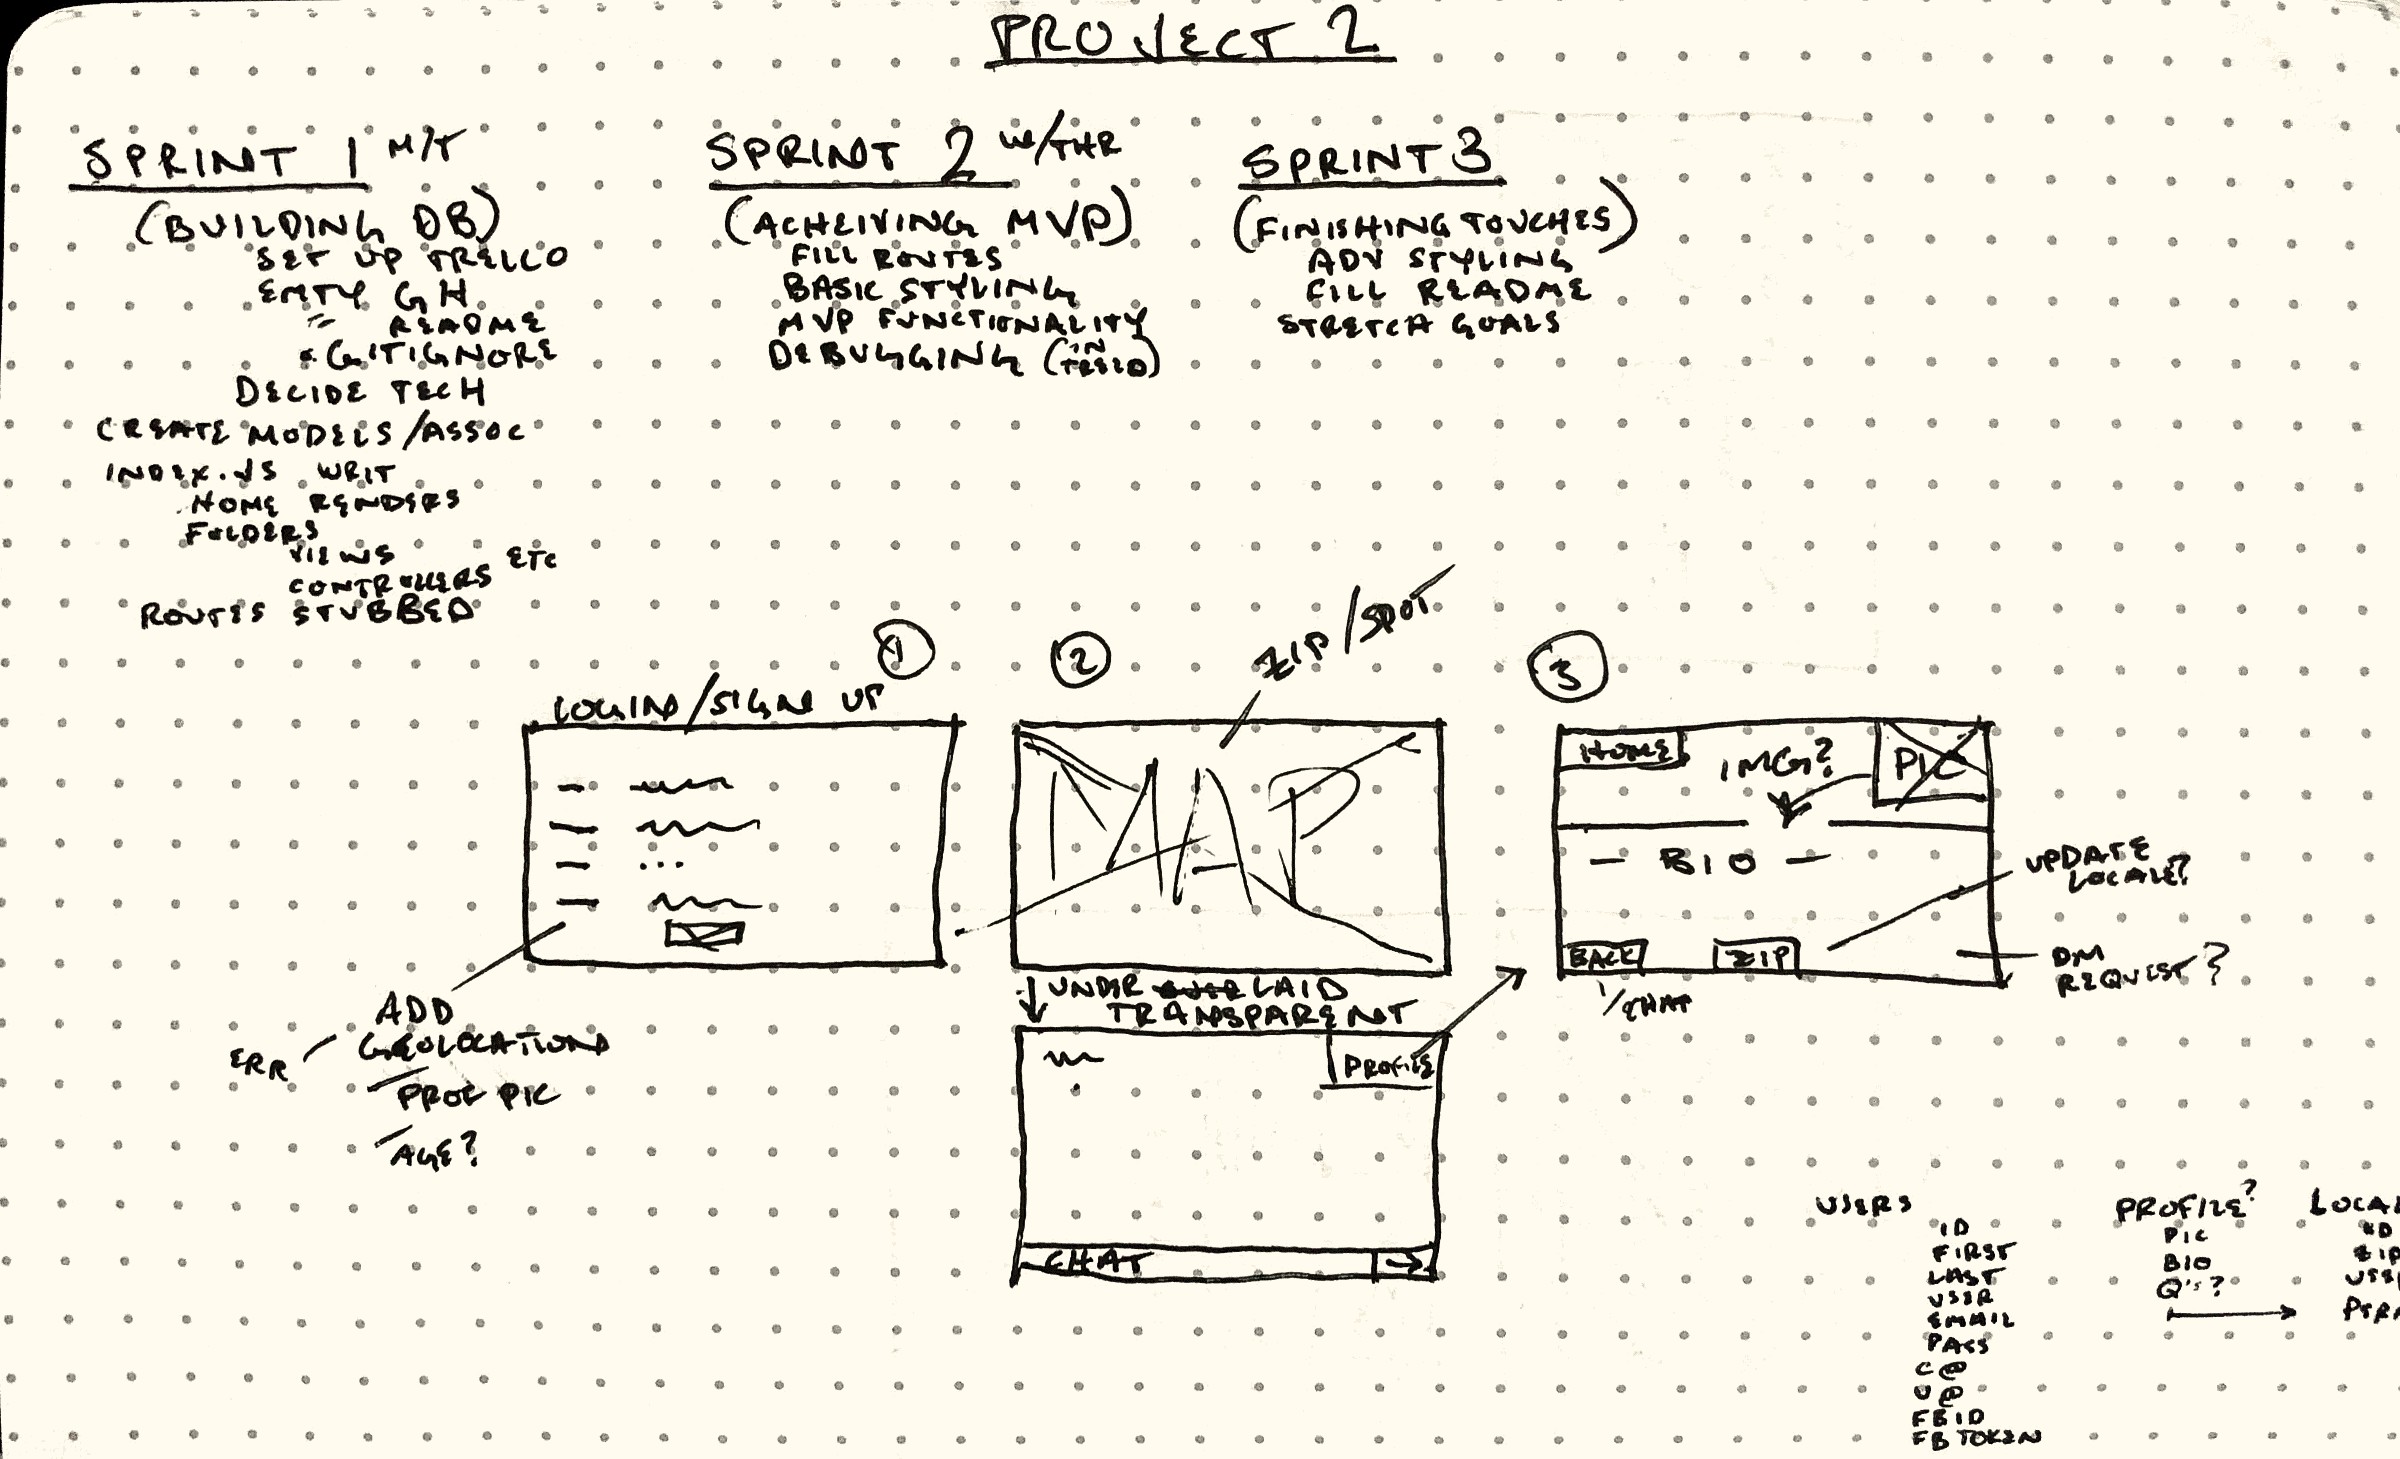 PROJECT 2
SPRINT 1 M/T
(BUILDING DB)
SET UP TRELLO
EMTY GH
README
GITIGNORE
DECIDE TECH
CREATE MODELS/ASSOC
INDEX.JS WRIT
HOME RENDERS
FOLDERS
VIEWS
CONTROLLERS ETC
ROUTES STUBBED
SPRINT 2 W/THR
(ACHEIVING MVP)
FILL ROUTES
BASIC STYLING
MVP FUNCTIONALITY
DEBUGGING (IN
SPRINT 3
(FINISHING TOUCHES)
ADV STYLING
FILL README
STRETCH GOALS
1
LOGIN/SIGN UP
ADD
GEOLOCATION
ERR
PROF PIC
AGE?
2
ZIP/SPOT
MAP
UNDER LAID
TRANSPARENT
PROFILE
CHAT
3
HOME
IMG?
PIC
- BIO -
BACK
ZIP
/CHAT
UPDATE
LOCALE?
DM
REQUEST?
USERS
ID
FIRST
LAST
USER
EMAIL
PASS
C@
U@
FBID
FB TOKEN
PROFILE?
PIC
BIO
Q's?
LOCA
ID
ZIP
USE